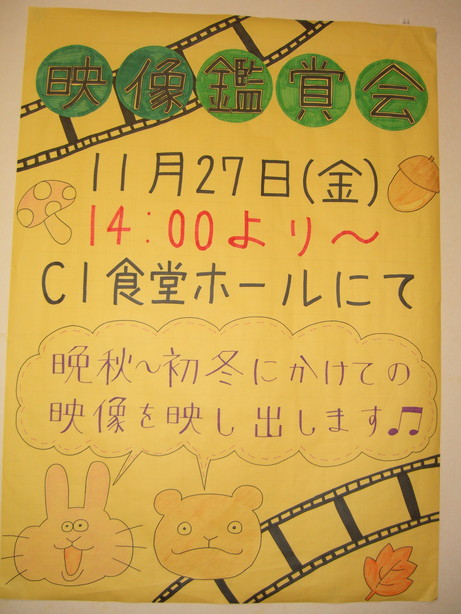 映像鑑賞会
11月27日(金)
14:00より〜
C1食堂ホールにて
晩秋〜初冬にかけての
映像を映し出します♫